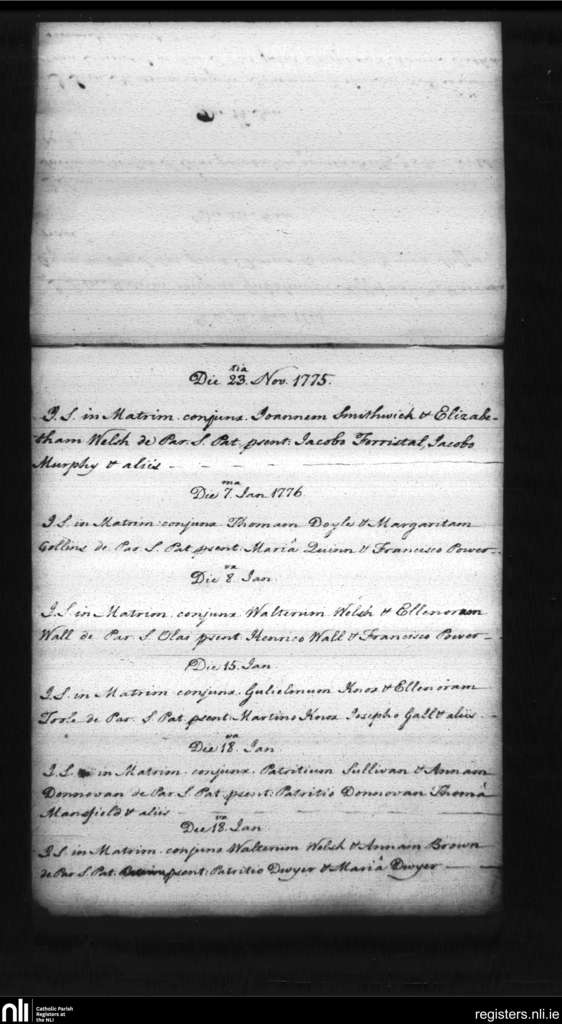 Die 23.tia Nov. 1775.
I.S. in Matrim. conjunx. Joannem Smithwick & Elizabe-
tham Welsh de Par. S. Pat. psent. Jacobo Forristal, Jacobo
Murphy & aliis
Die 7.ma Jan 1776
I.S. in Matrim: conjunx Thomam Doyle & Margaritam
Collins de Par S. Pat psent Mariâ Quinn & Francisco Power
Die 8.va Jan
I.S in Matrim. conjunx. Walterum Welsh & Ellenoram
Wall de Par S Olai psent Henrico Wall & Francisco Power
Die 15. Jan
I.S. in Matrim conjunx. Gulielmum Knox & Ellenoram
Toole de Par. S Pat. psent. Martino Knox Josepho Gall & aliis
Die 18.va Jan
I.S. in Matrim. conjunx. Patritium Sullivan & Annam
Donnovan de Par S. Pat. psent: Patritio Donnovan Thomâ
Mansfield & aliis
Die 18.va Jan
I.S. in Matrim. conjunx Walterum Welsh & Annam Brown
de Par S. Pat. psent: Patritio Dwyer & Mariâ Dwyer
nli Catholic Parish
Registers at
the NLI
registers.nli.ie